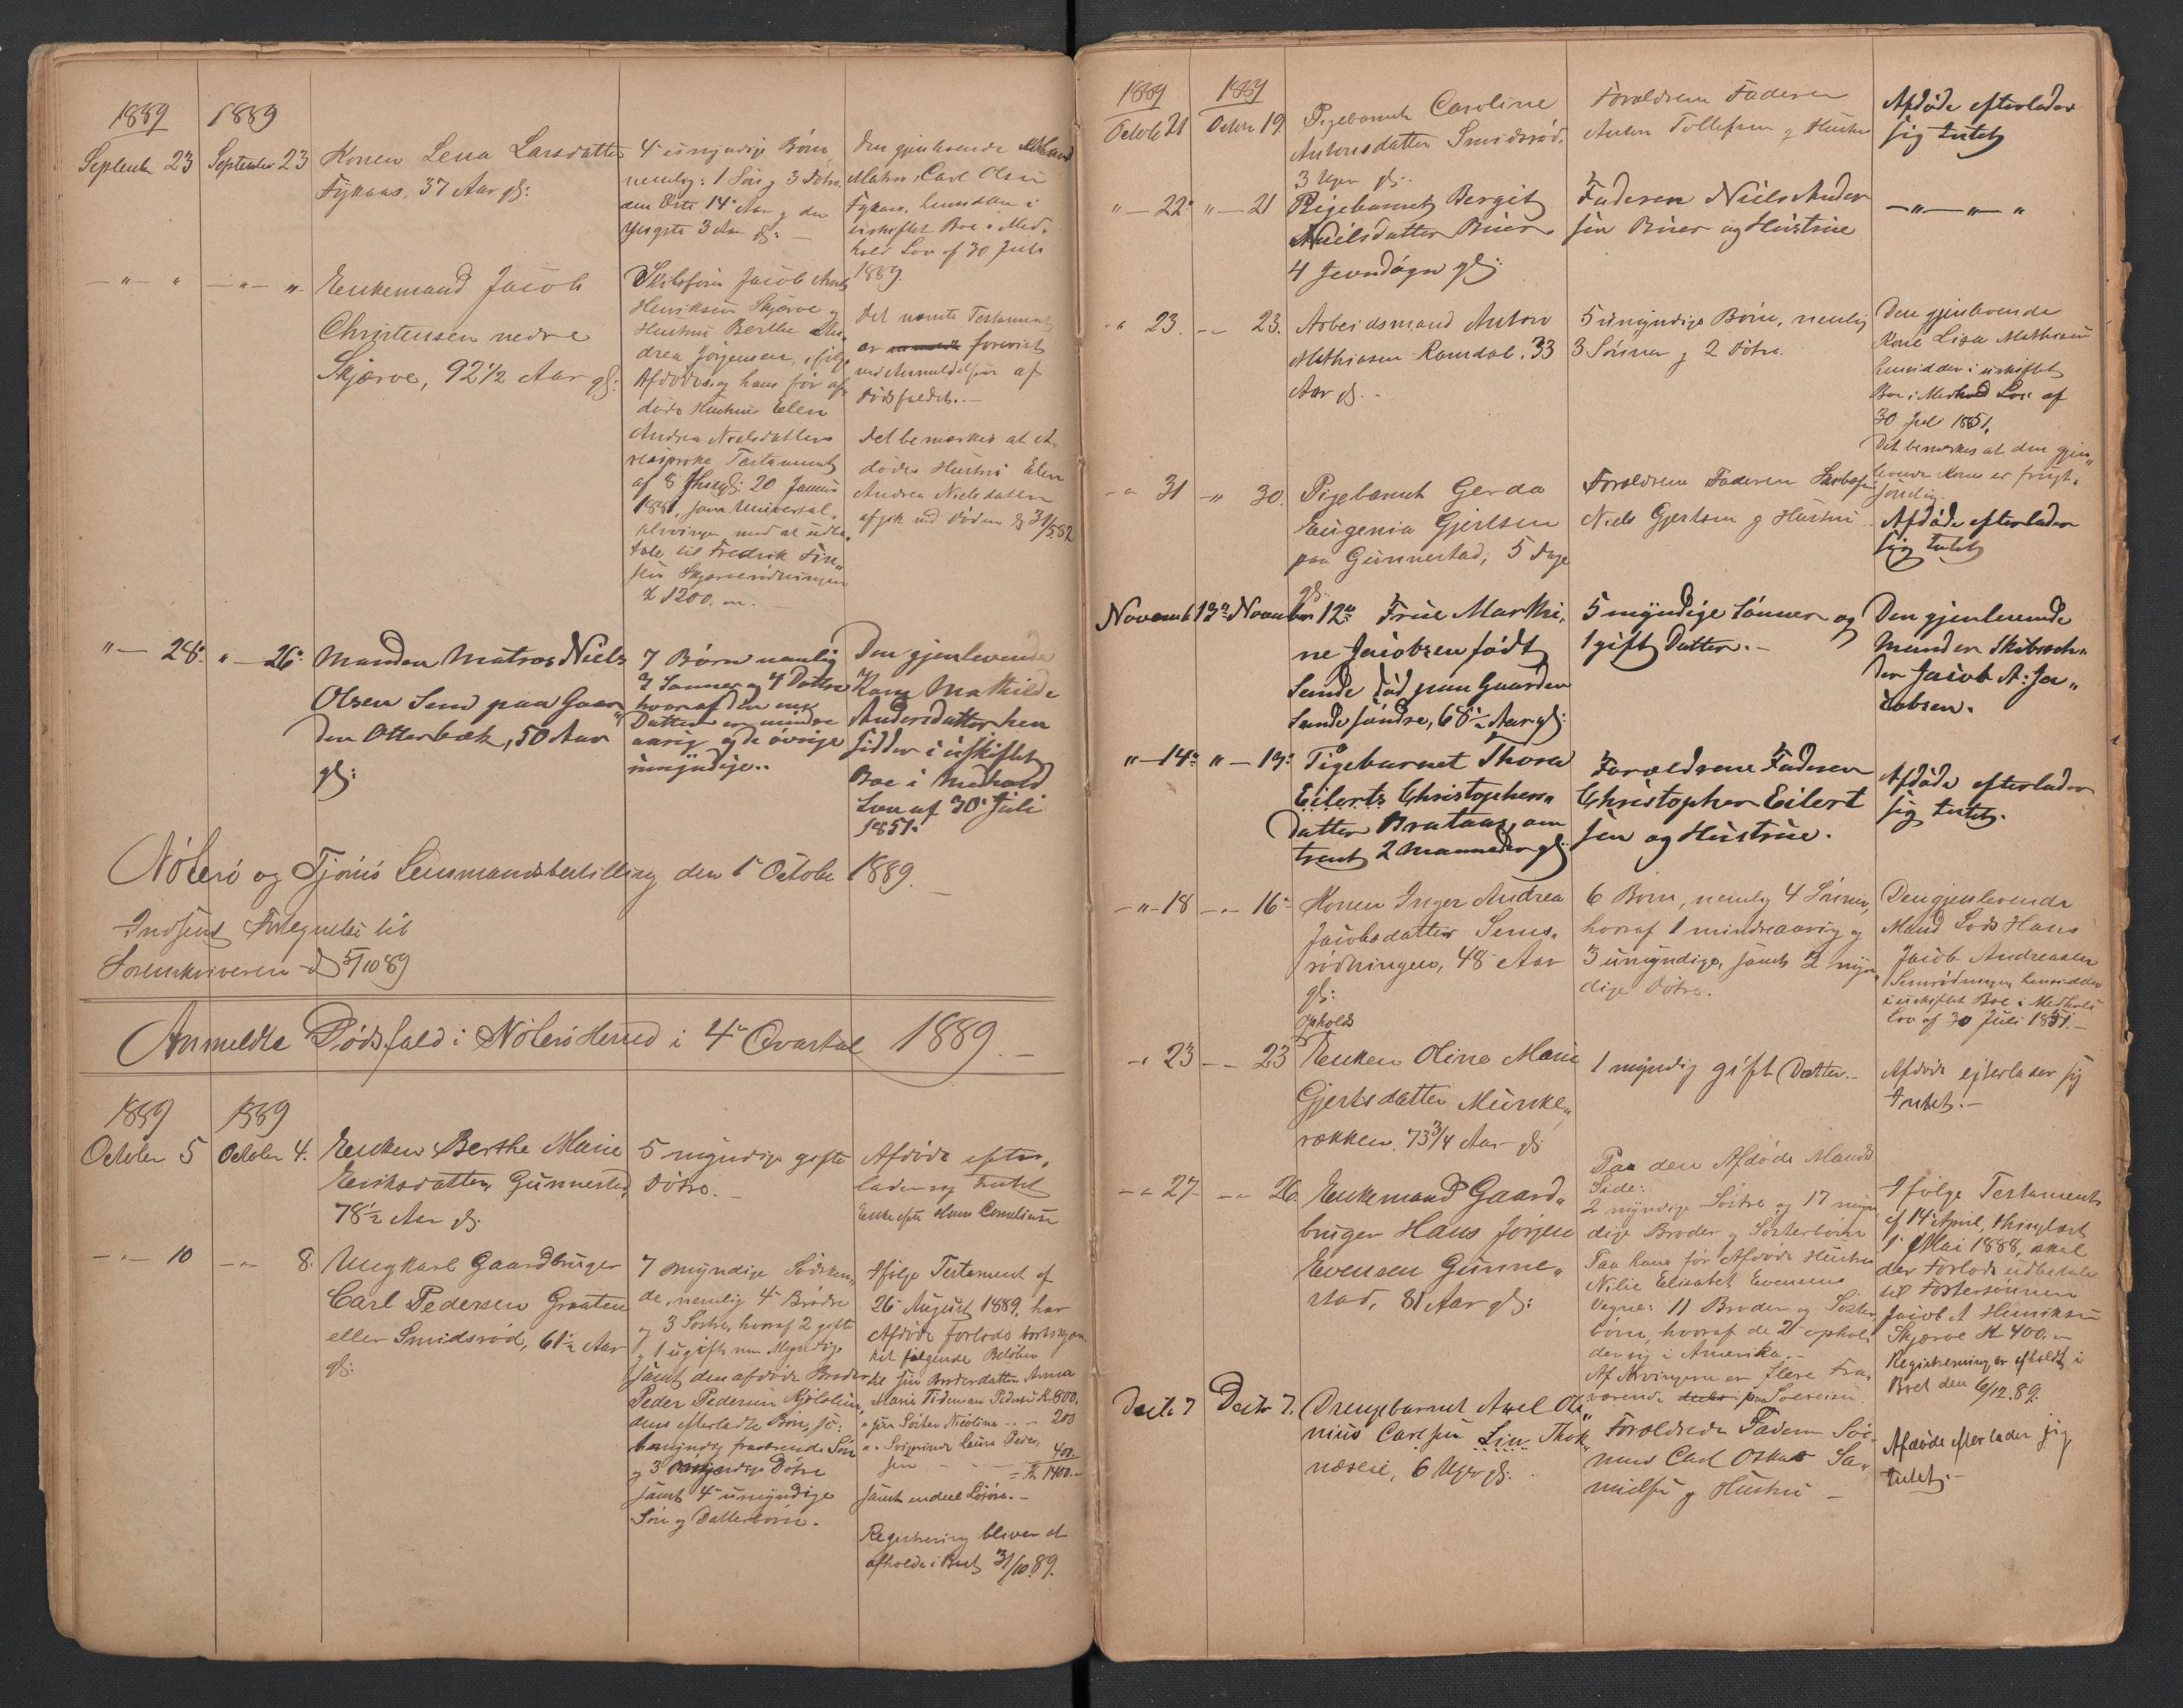 1889 1889
September 23 September 23 Konen Lena Larsdatter
Fykaas, 37 Aar gl:
4 umyndige Børn
nemlig: 1 Søn og 3 Døtre
den Ældste 14 Aar og den
yngste 3 Aar gl: —
Den gjenlevende Mand
Matros, Carl Olsen
Fykaas, hensidder i
uskiftet Boe i Med-
hold Lov af 30 Juli
1889.
— " — " — " — " Enkemand Jacob
Christensen nedre
Skjærve, 92 1/2 Aar gl:
Skibsfører Jacob
Henriksen Skjærve og
Hustru Berthe An-
drea Jørgensen, ifølge
Afdødes og hans før af-
døde Hustru Elen
Andrea Nielsdatters
Testament
af 8 Thingl: 20 Januar
1881, som Universal-
arvinger, mod at udbe-
tale til Fredrik
sen Skjærverødningen
1200.
Det nævnte Testament
er forevist
ved Anmeldelsen af
Dødsfaldet. —
Det bemærkes at
dødes Hustru Elen
Andrea Nielsdatter
afgik ved Døden 31/5 82
" — 28: " — 26: Manden Matros Niels
Olsen Sem paa Gaar"
den Otterbæk, 50 Aar
gl:
7 Børn nemlig
3 Sønner og 4 Døtre
hvoraf den ene
Datter er mindre
aarig og de øvrige
umyndige..
Den gjenlevende
Kone Mathilde
Andersdatter hen
sidder i uskiftet
Boe i Medhold
Lov af 30: Juli
1851.
Nøterø og Tjømø Lensmandsbestilling den 1 October 1889.
Indsendt Fortegnelse til
Sorenskriveren d 5/10 89
Anmeldte Dødsfald i Nøterø Herred i 4 Qvartal 1889. —
1889 1889
October 5 October 4. Enken Berthe Marie
Eriksdatter, Gunnestad,
78 1/2 Aar gl:
5 myndige gifte
Døtre. —
Afdøde efter-
lader sig Intet
Enke efter Hans Cornelius
— " — 10 — " — 8. Ungkarl Gaardbruger
Carl Pedersen Graaten
eller Smidsrød, 61 1/2 Aar
gl:
7 myndige Sødsken-
de, nemlig 4 Brødre
og 3 Søstre, hvoraf 2 gifte
og 1 ugift men Myndige
samt den afdøde Broder
Peder Pedersen
dens efterladte Børn,
myndig fraværende Søn
og 3 Døtre
samt 4 umyndige
Søn og Datterbørn.
Ifølge Testament af
26 August 1889, har
Afdøde forlods bortskjæn-
ket følgende Beløber
til sin Broderdatter Anna
Marie Tideman Pedersen Kr 800.
" sin Søster Nicoline .. — 200
" " Svigerinde Laura Peder-
sen — — — 400.—
= Kr 1400.—
samt endeel Løsøre. —
Registrering bliver at
afholde i Boet 31/10 89.
1889 1889
Octobr 21 Octobr 19. Pigebarnet Caroline
Antonsdatter Smidsrød.
3 Uger gl:
Forældrene Faderen
Anton Tollefsen og Hustru
Afdøde efterlader
sig Intet
" — 22: " — 21 Pigebarnet Bergit
Nielsdatter Buer
4 Jevndøgn gl:
Faderen Niels Ander
sen Buer og Hustrue
— " — " — "
— " 23. — — 23. Arbeidsmand Anton
Mathiasen Ramdal. 33
Aar gl. -
5 umyndige Børn, nemlig
3 Sønner og 2 Døtre.
Den gjenlevende
Kone Lisa Mathisen
hensidder i uskiftet
Boe i Medhold Lov af
30 Juli 1851.
Det bemærkes at den gjen"
levende Kone er frugt-
sommelig.
— " 31 — " 30. Pigebarnet Gerda
Eugenia Gjertsen
paa Gunnestad, 5 Dage
gl:
Forældrene Faderen
Niels Gjertsen og Hustru.
Afdøde efterlader
sig Intet
Novemb 13: November 12: Frue Marthi-
ne Jacobsen født
Sunde død paa Gaarden
Sunde søndre, 68 1/2 Aar gl:
5 myndige Sønner og
1 gift Datter. —
Den gjenlevende
Mand er Skibsrh-
der Jacob A: Ja"
cobsen.
" — 14: " — 13: Pigebarnet Thora
Eilerts Christophers"
datter Brataas, om
trent 2 Maaneder gl:
Forældrene Faderen
Christopher Eilert
sen og Hustrue.
Afdøde efterlader
sig Intet.
— " — 18 — " — 16 Konen Inger Andrea
Jacobsdatter Sems-
rødningen, 48 Aar
gl:
6 Børn, nemlig 4 Sønner,
hvoraf 1 mindreaarig og
3 umyndige, samt 2 myn"
dige Døtre.
Den gjenlevende
Mand Lods Hans
Jacob Andreasen
Semsrødningen hensidder
i uskiftet Boe i Medhold
Lov af 30 Juli 1851. —
— " 23 — — 23 Opholds
Enken Oline Marie
Gjertsdatter Munke"
rækken, 73 3/4 Aar gl:
1 myndig gift Datter. —
Afdøde efterlader sig
Intet. —
— " 27 — — " 26 Enkemand Gaard"
bruger Hans Jørgen
Evensen Gunne"
stad, 81 Aar gl:
Paa den Afdøde Mands
Side:
2 myndige Søstre og 17 myn
dige Broder og Søsterbørn
Paa hans før Afdøde Hustru
Nilie Elisabet Evensens
Vegne: 11 Broder og Søster-
børn, hvoraf de 2 ophol-
der sig i Amerika. —
Af Arvingerne er flere Fra-
værende
Ifølge Testament
af 14 April, thinglæst
1 Mai 1888, skal
der Forlods udbetales
til Fostersønnen
Jacob A Henriksen
Skjærve Kr 400. —
Registrering er afholdt i
Boet den 6/12. 89.
Decbr 7 Decbr 7. Drengebarnet Axel Ole"
nius Carlsen Lin Thok"
næseie, 6 Uger gl:
Forældrene Faderen Søe-
mand Carl Oskar Sa"
muelsen og Hustru —
Afdøde efterlader sig
Intet. —